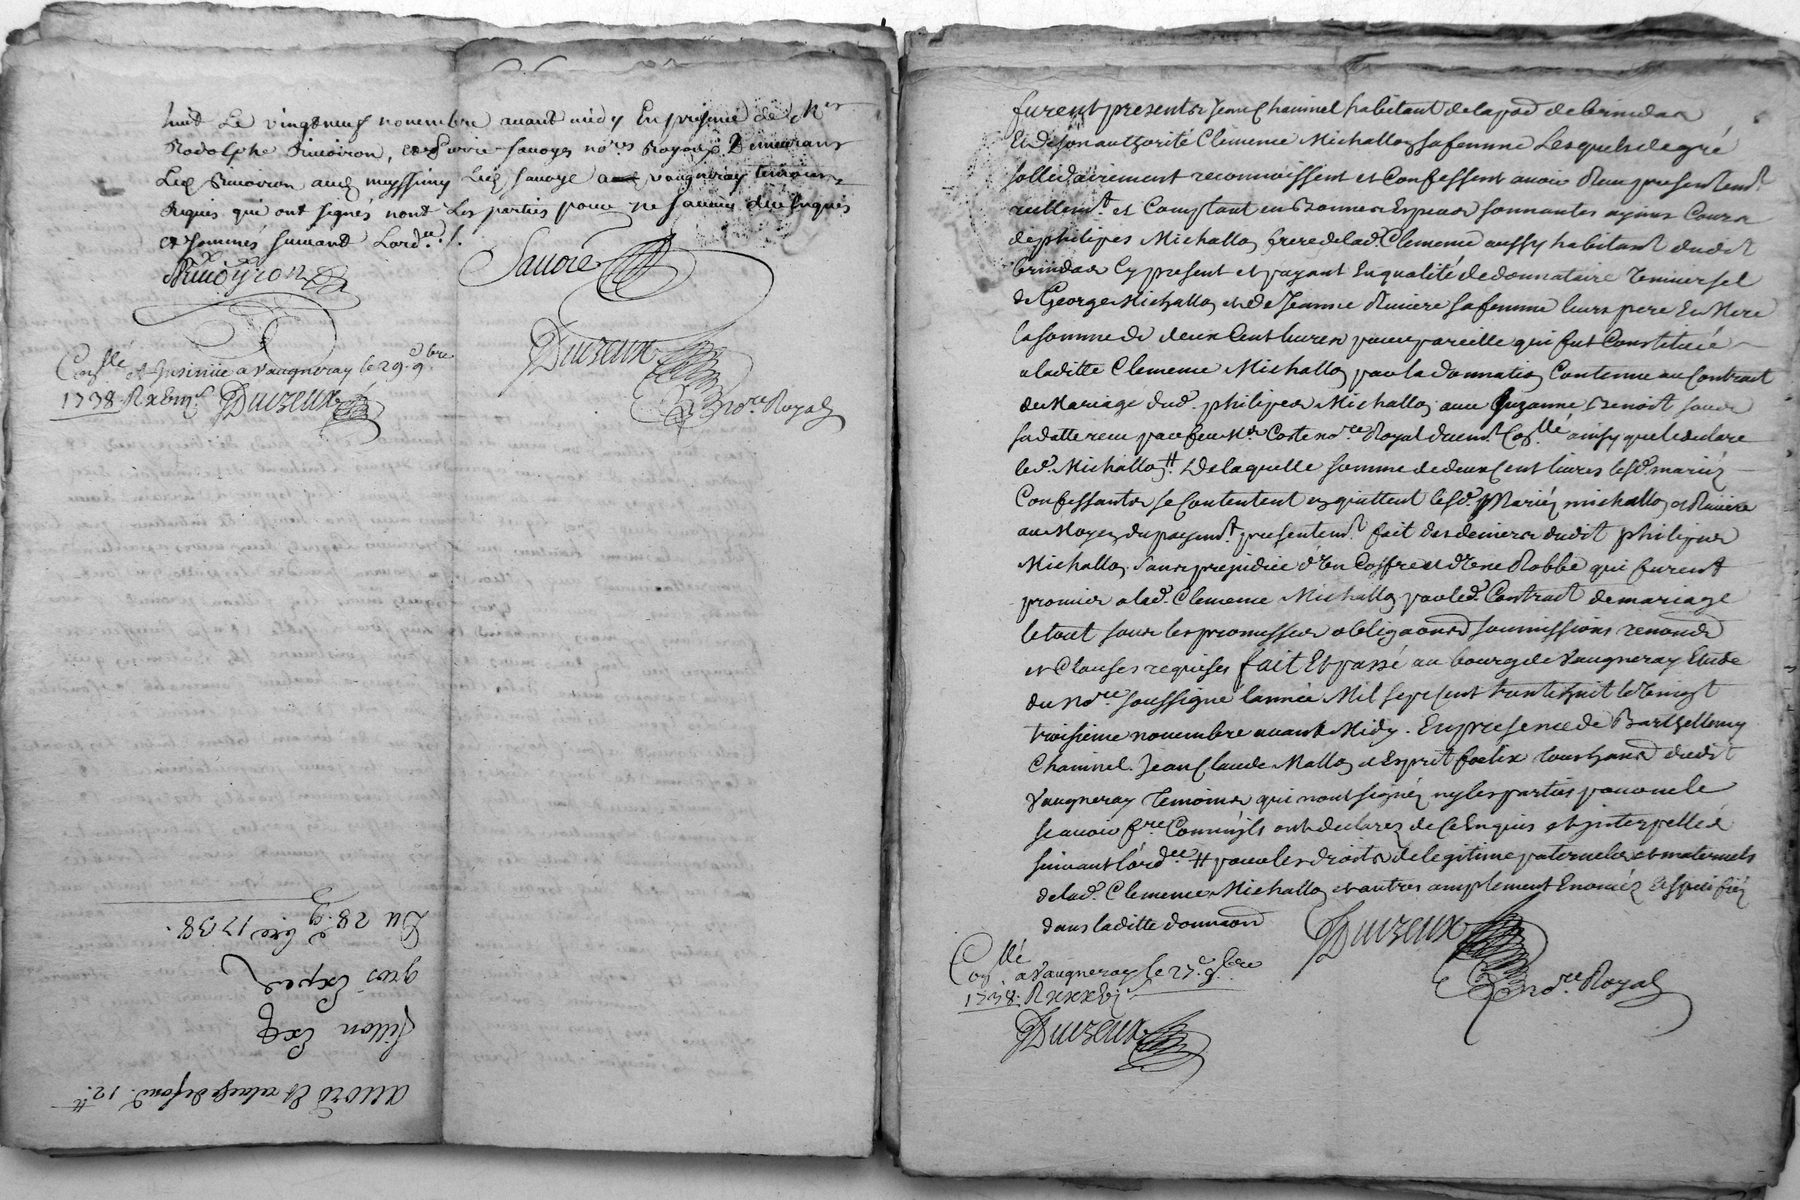 huit Le vingtneuf novembre avant midy En presence de Mes
Rodolphe Simoiron, et Pierre Savoye nores Royaux Demeurans
Led Simoiron aud Meyssimy Led Savoye a vaugneray temoins
Requis qui ont signés nont Les parties pour ne Scavoir de ce Enquis
et Sommés suivant Lordce ./.
Simoyron
Savoie
Duizeux
nore Royal
Conllé et Insinué a Vaugneray le 29e 9bre
1738 R
Duizeux
accord Et relache de fond 12tt
fillon Exp
gros Expé
Du 28e 9bre 1738.
furent presents Jean Chaninel habitant de la pad de brindas
Et De son authorité Clemence Michallon sa femme Lesquels de gré
sollidairement reconnoissent et Confessent avoir Receu presentemt
reellemt et Comptant en Bonnes Especes sonnantes ayans Cours
de philipes Michallon frere de lad. Clemence aussy habitant dudit
brindas Cy present et payant En qualité de donnataire Universel
de George Michallon et de Jeanne Riviere sa femme leurs pere Et Mere
la somme de deux Cent livres pour pareille qui fut Constituée
a laditte Clemence Michallon par la donnation Contenue au Contract
de Mariage dud. philipes Michallon avec Suzanne Benoit sous
sa datte receu par feu Me Coste nore Royal duemt Conllé ainsy que le declare
led. Michallon # De laquelle somme de deux Cent livres lesd. mariés
Confessants se Contentent en quittent lesd. Mariés michallon et Riviere
au Moyen du payemt presentemt fait des deniers dudit philipes
Michallon. Sans prejudice d'Un Coffre et d'Une Robbe qui furent
promis a lad. Clemence Michallon par led. Contract de mariage
le tout sous les promesses obligaons soumissions renonds
et Clauses requises fait Et passé au bourg de Vaugneray Etude
du nore soussigné l'année Mil sept Cent trente huit le Vingt
troisieme novembre avant Midy. En presence de Barthellemy
Chaninel. Jean Claude Mallon et Esprit foelix tous hans dudit
Vaugneray Temoins qui nont signéz ny les parties pour ne le
scavoir fre Comme ils ont declarez de Ce Enquis et interpellés
suivant l'ordce # pour les droits de legitime paternels et maternels
de lad. Clemence Michallon et autres amplement Enoncéz Et specifiéz
dans laditte donnaon
Duizeux
nore Royal
Conllé a Vaugneray le 27e 9bre
1738. R
Duizeux